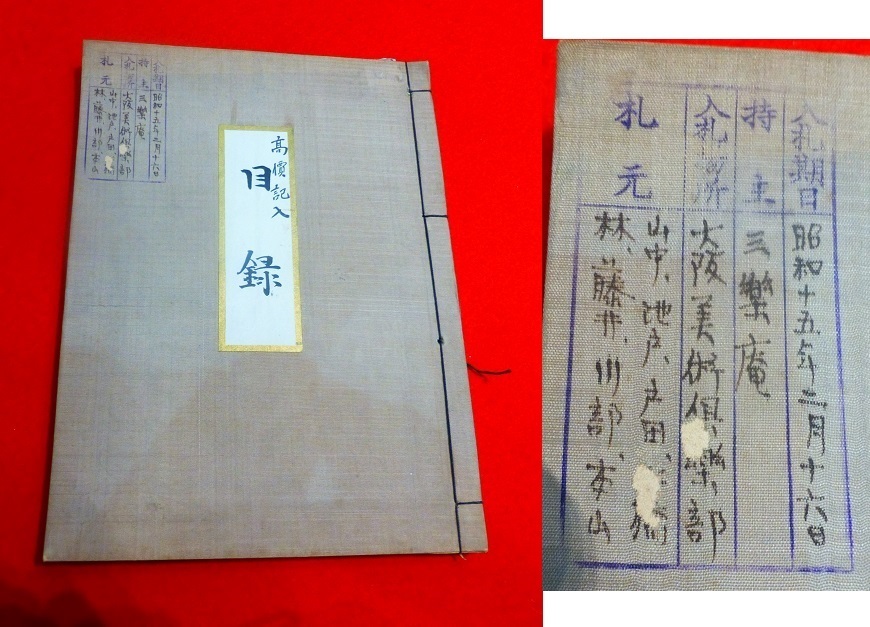 高價記入
目録
入札期日 昭和十五年二月十六日
持主 三樂庵
入札所 大阪美術倶楽部
札元 山中、池戸、戸田、
林、藤井、川部、本山
入札期日 昭和十五年二月十六日
持主 三樂庵
入札所 大阪美術倶楽部
札元 山中、池戸、戸田、
林、藤井、川部、本山